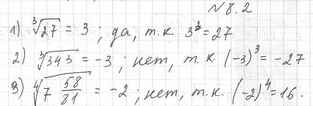 №8.2
1) ∛27 = 3 ; да, т.к 3³=27
2) ∛343 = -3 ; нет, т.к (-3)³ = -27
3) ∜7 58/81 = -2 ; нет, т.к. (-2)⁴=16.